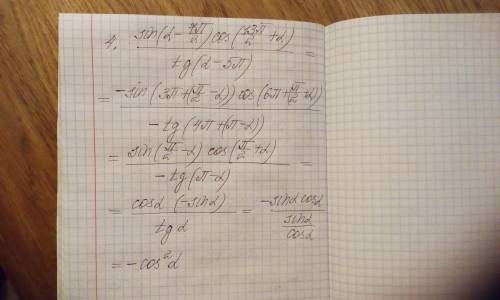 4. sin(α - 7π/2) cos(13π/2 + α) / tg(α - 5π) =
= -sin(3π + (π/2 - α)) cos(6π + (π/2 + α)) / -tg(4π + (π - α))
= sin(π/2 - α) cos(π/2 + α) / -tg(π - α) =
= cosα (-sinα) / tgα = -sinα cosα / sinα/cosα
= -cos²α